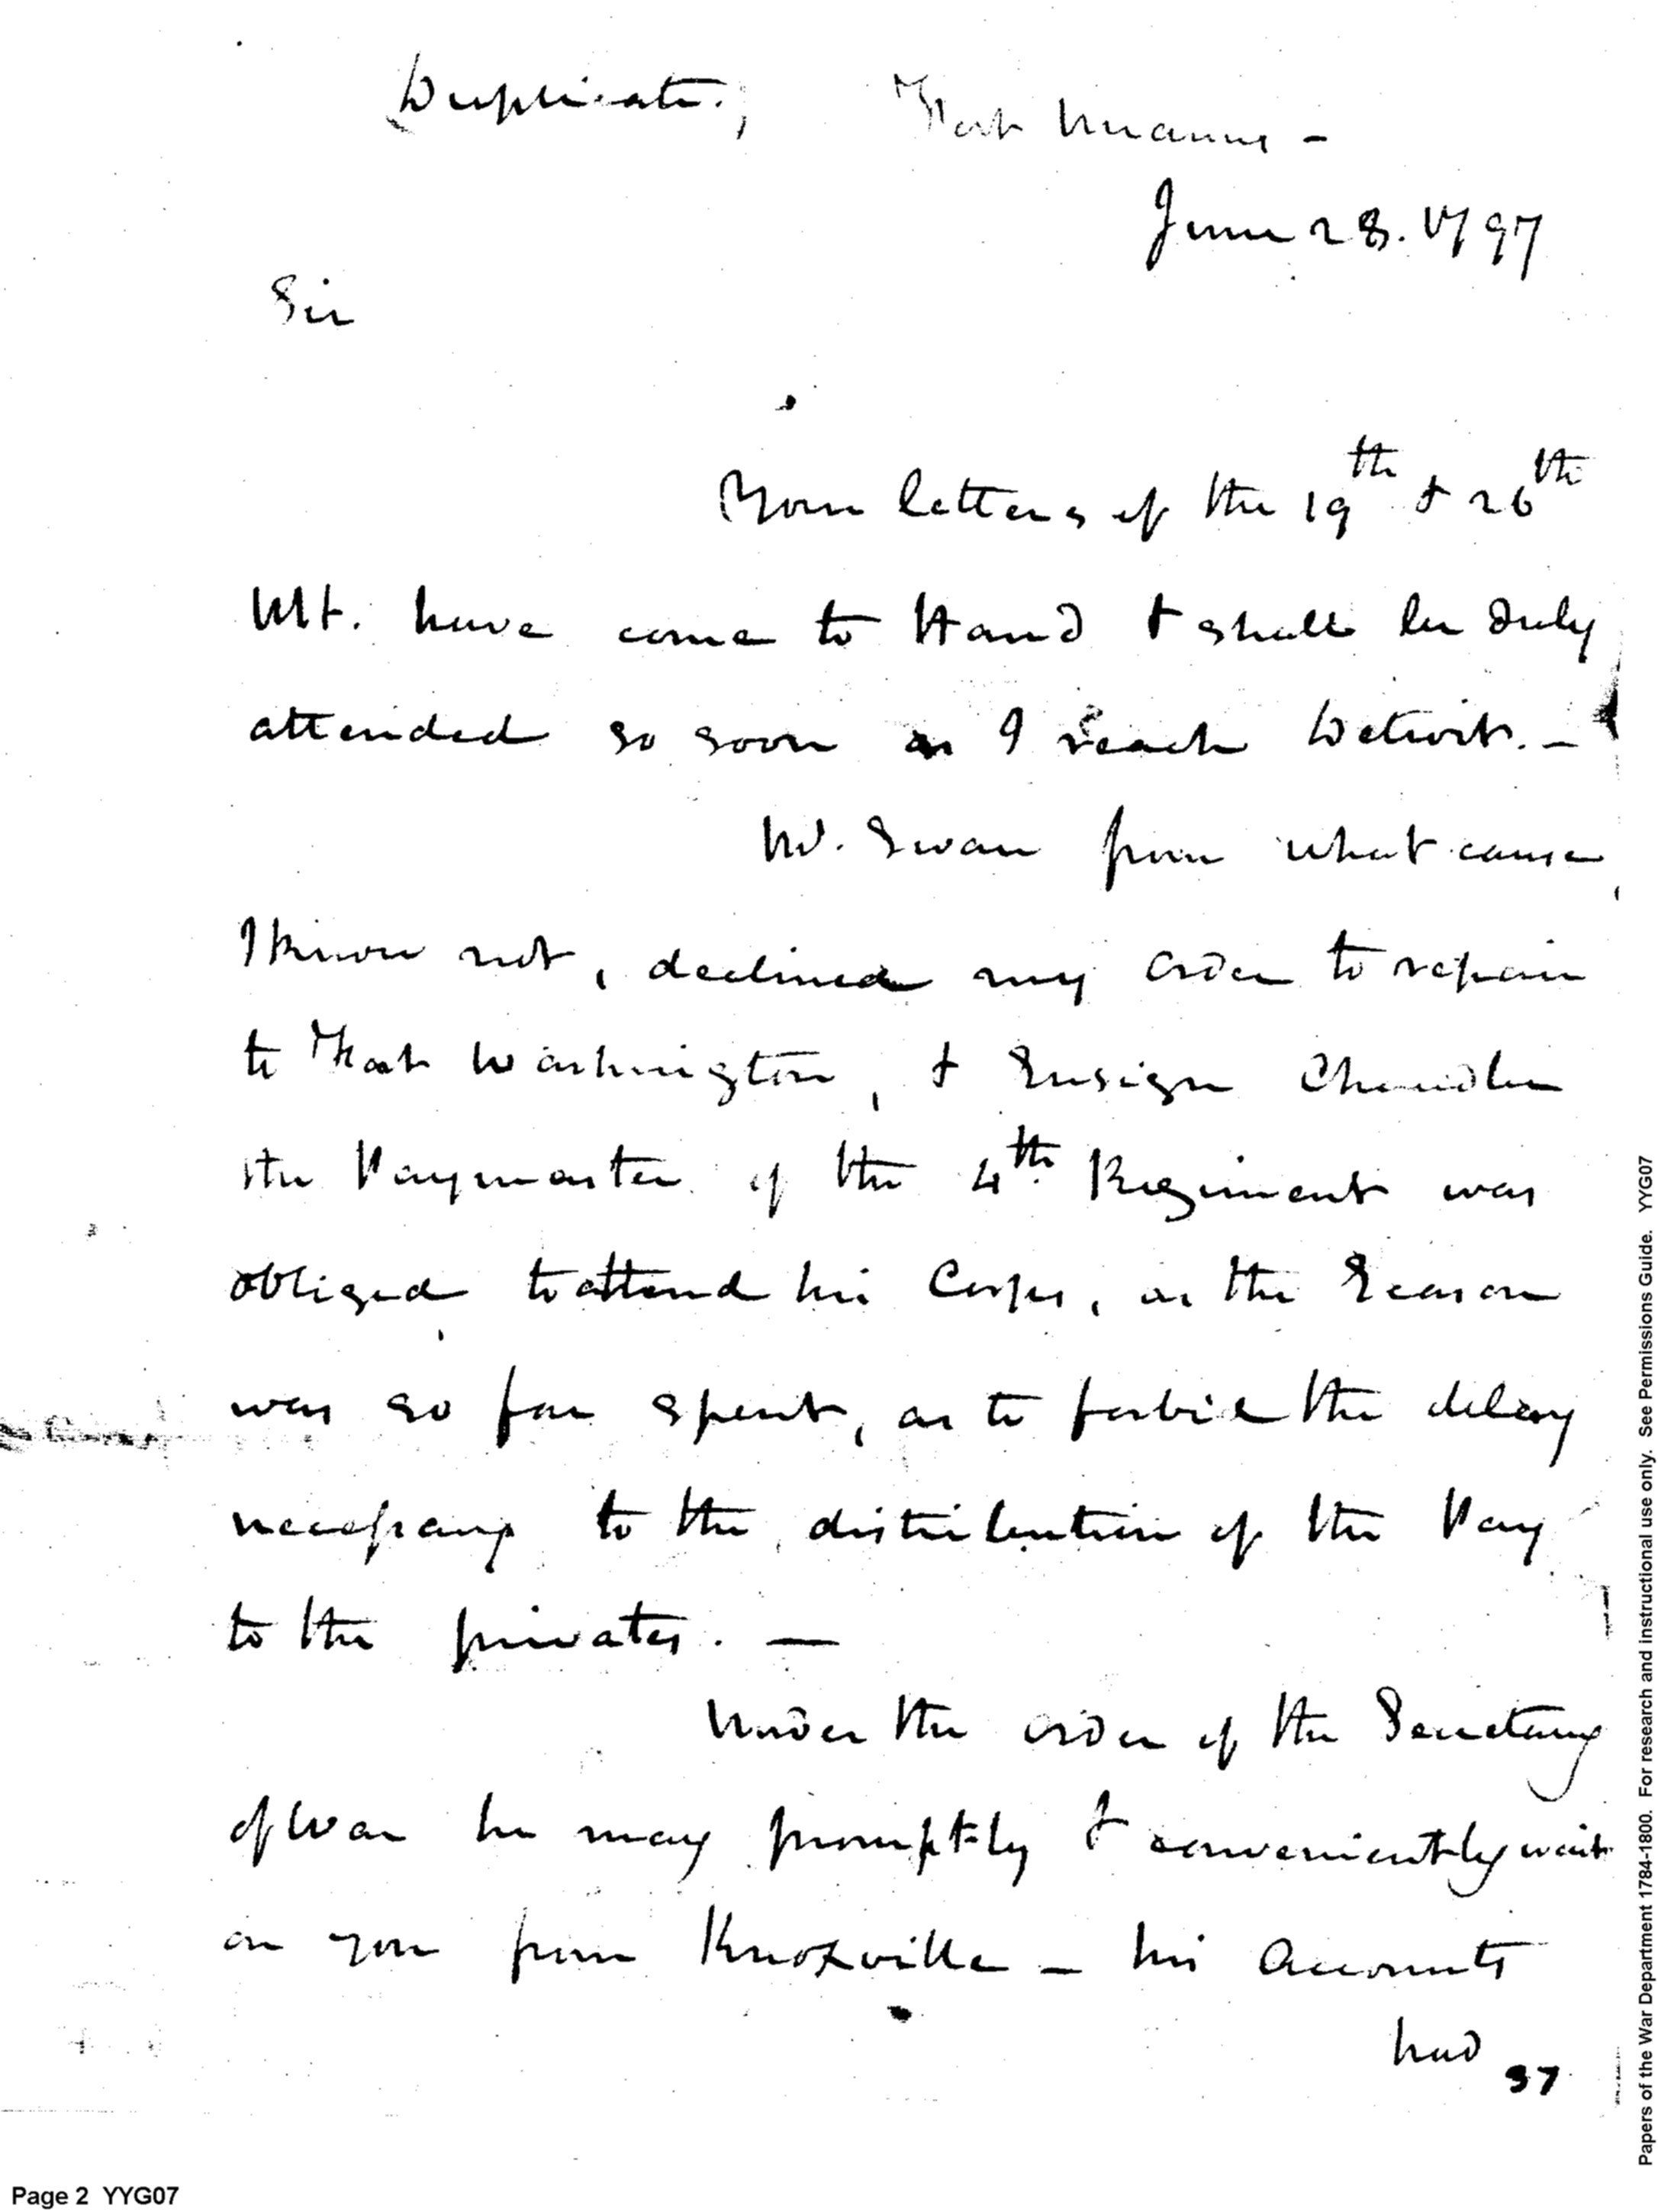 Duplicate. Fort Miamis -
June 28. 1797
Sir
Your letters of the 19th & 26th
Ult. have come to Hand & shall be duly
attended so soon as I reach Detroit. -
Mr. Swan from what cause
I know not, declined my order to repair
to Fort Washington, & Ensign Chandler
the Paymaster of the 4th Regiment was
obliged to attend his Corps, as the Season
was so far spent, as to forbid the delay
necessary to the distribution of the Pay
to the privates. —
Under the order of the Secretary
of War he may promptly & conveniently wait
on you from Knoxville - his Accounts
had
37
Page 2 YYG07
Papers of the War Department 1784-1800. For research and instructional use only. See Permissions Guide. YYG07